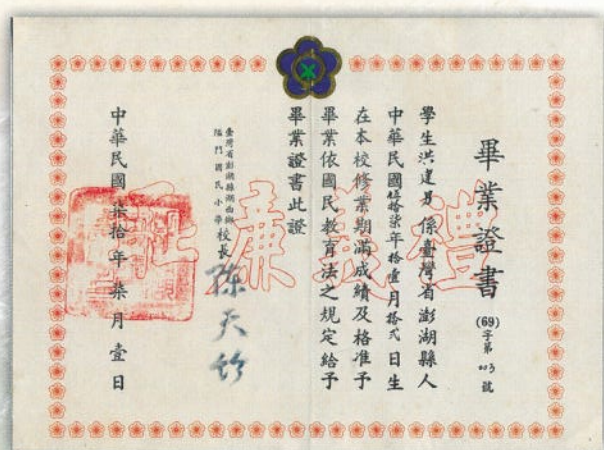 畢業證書
(69)字第003號
學生洪建男係臺灣省澎湖縣人
中華民國伍拾柒年拾壹月拾弍日生
在本校修業期滿成績及格准予
畢業依國民教育法之規定給予
畢業證書此證
臺灣省澎湖縣湖西鄉
隘門國民小學校長
陳天
中華民國柒拾年柒月壹日
禮義廉恥